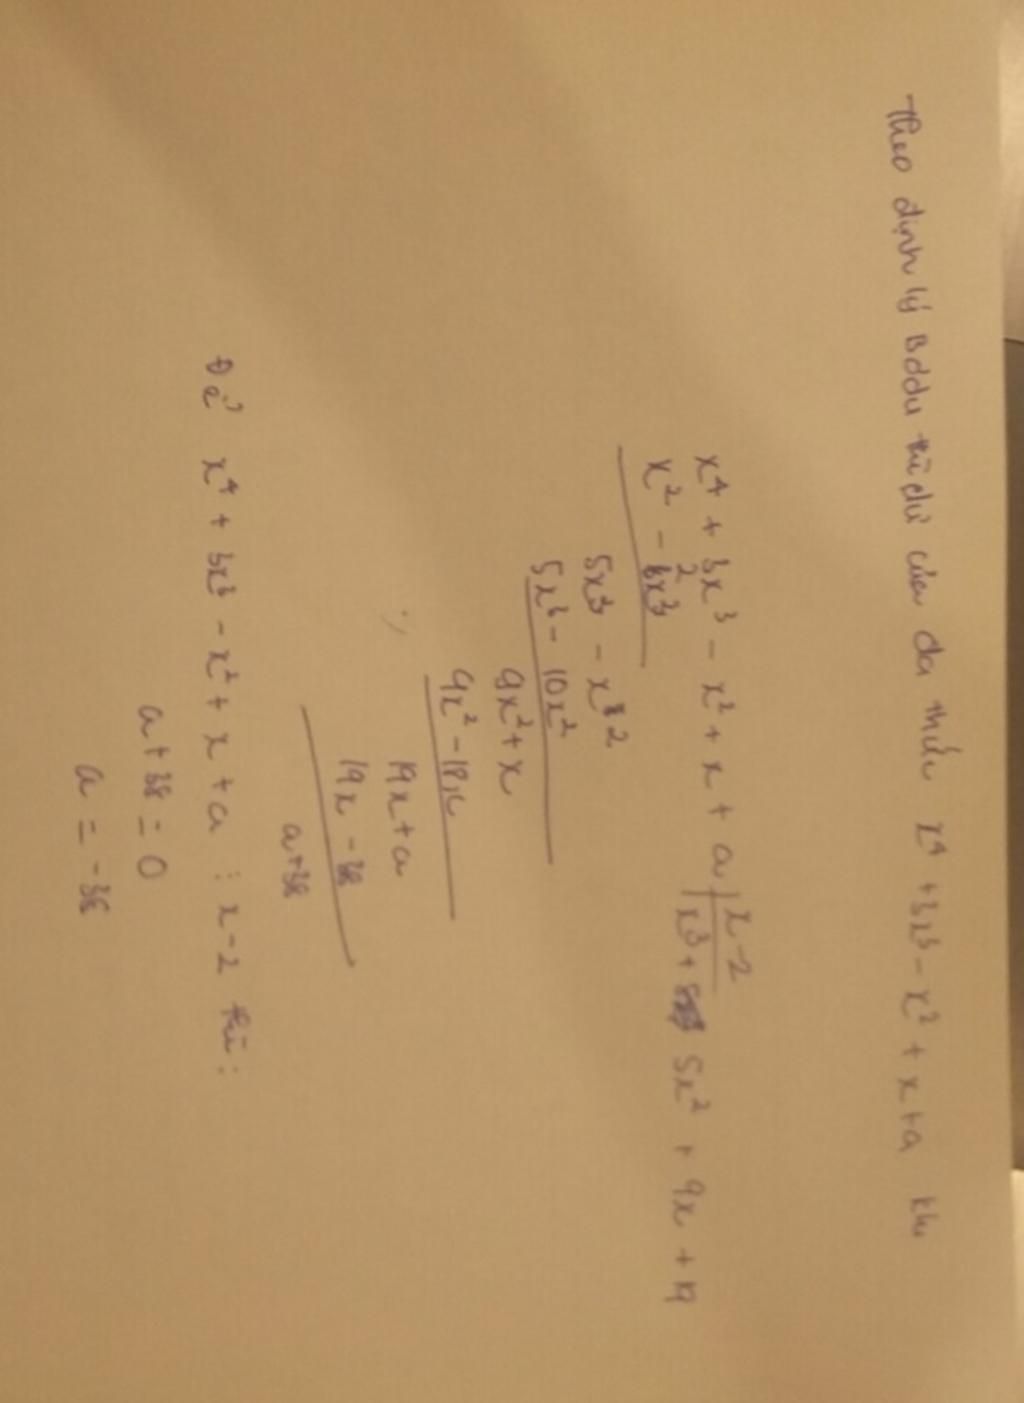 Theo định lý Bơdu thì dư của đa thức x⁴ + 3x³ - x² + x + a khi
x⁴ + 3x³ - x² + x + a | x - 2
x² - 2x³ | x³ + 5x² + 9x + 19
5x³ - x²
5x³ - 10x²
9x² + x
9x² - 18x
19x + a
19x - 38
a + 38
Để x⁴ + 3x³ - x² + x + a ⋮ x - 2 thì :
a + 38 = 0
a = -38